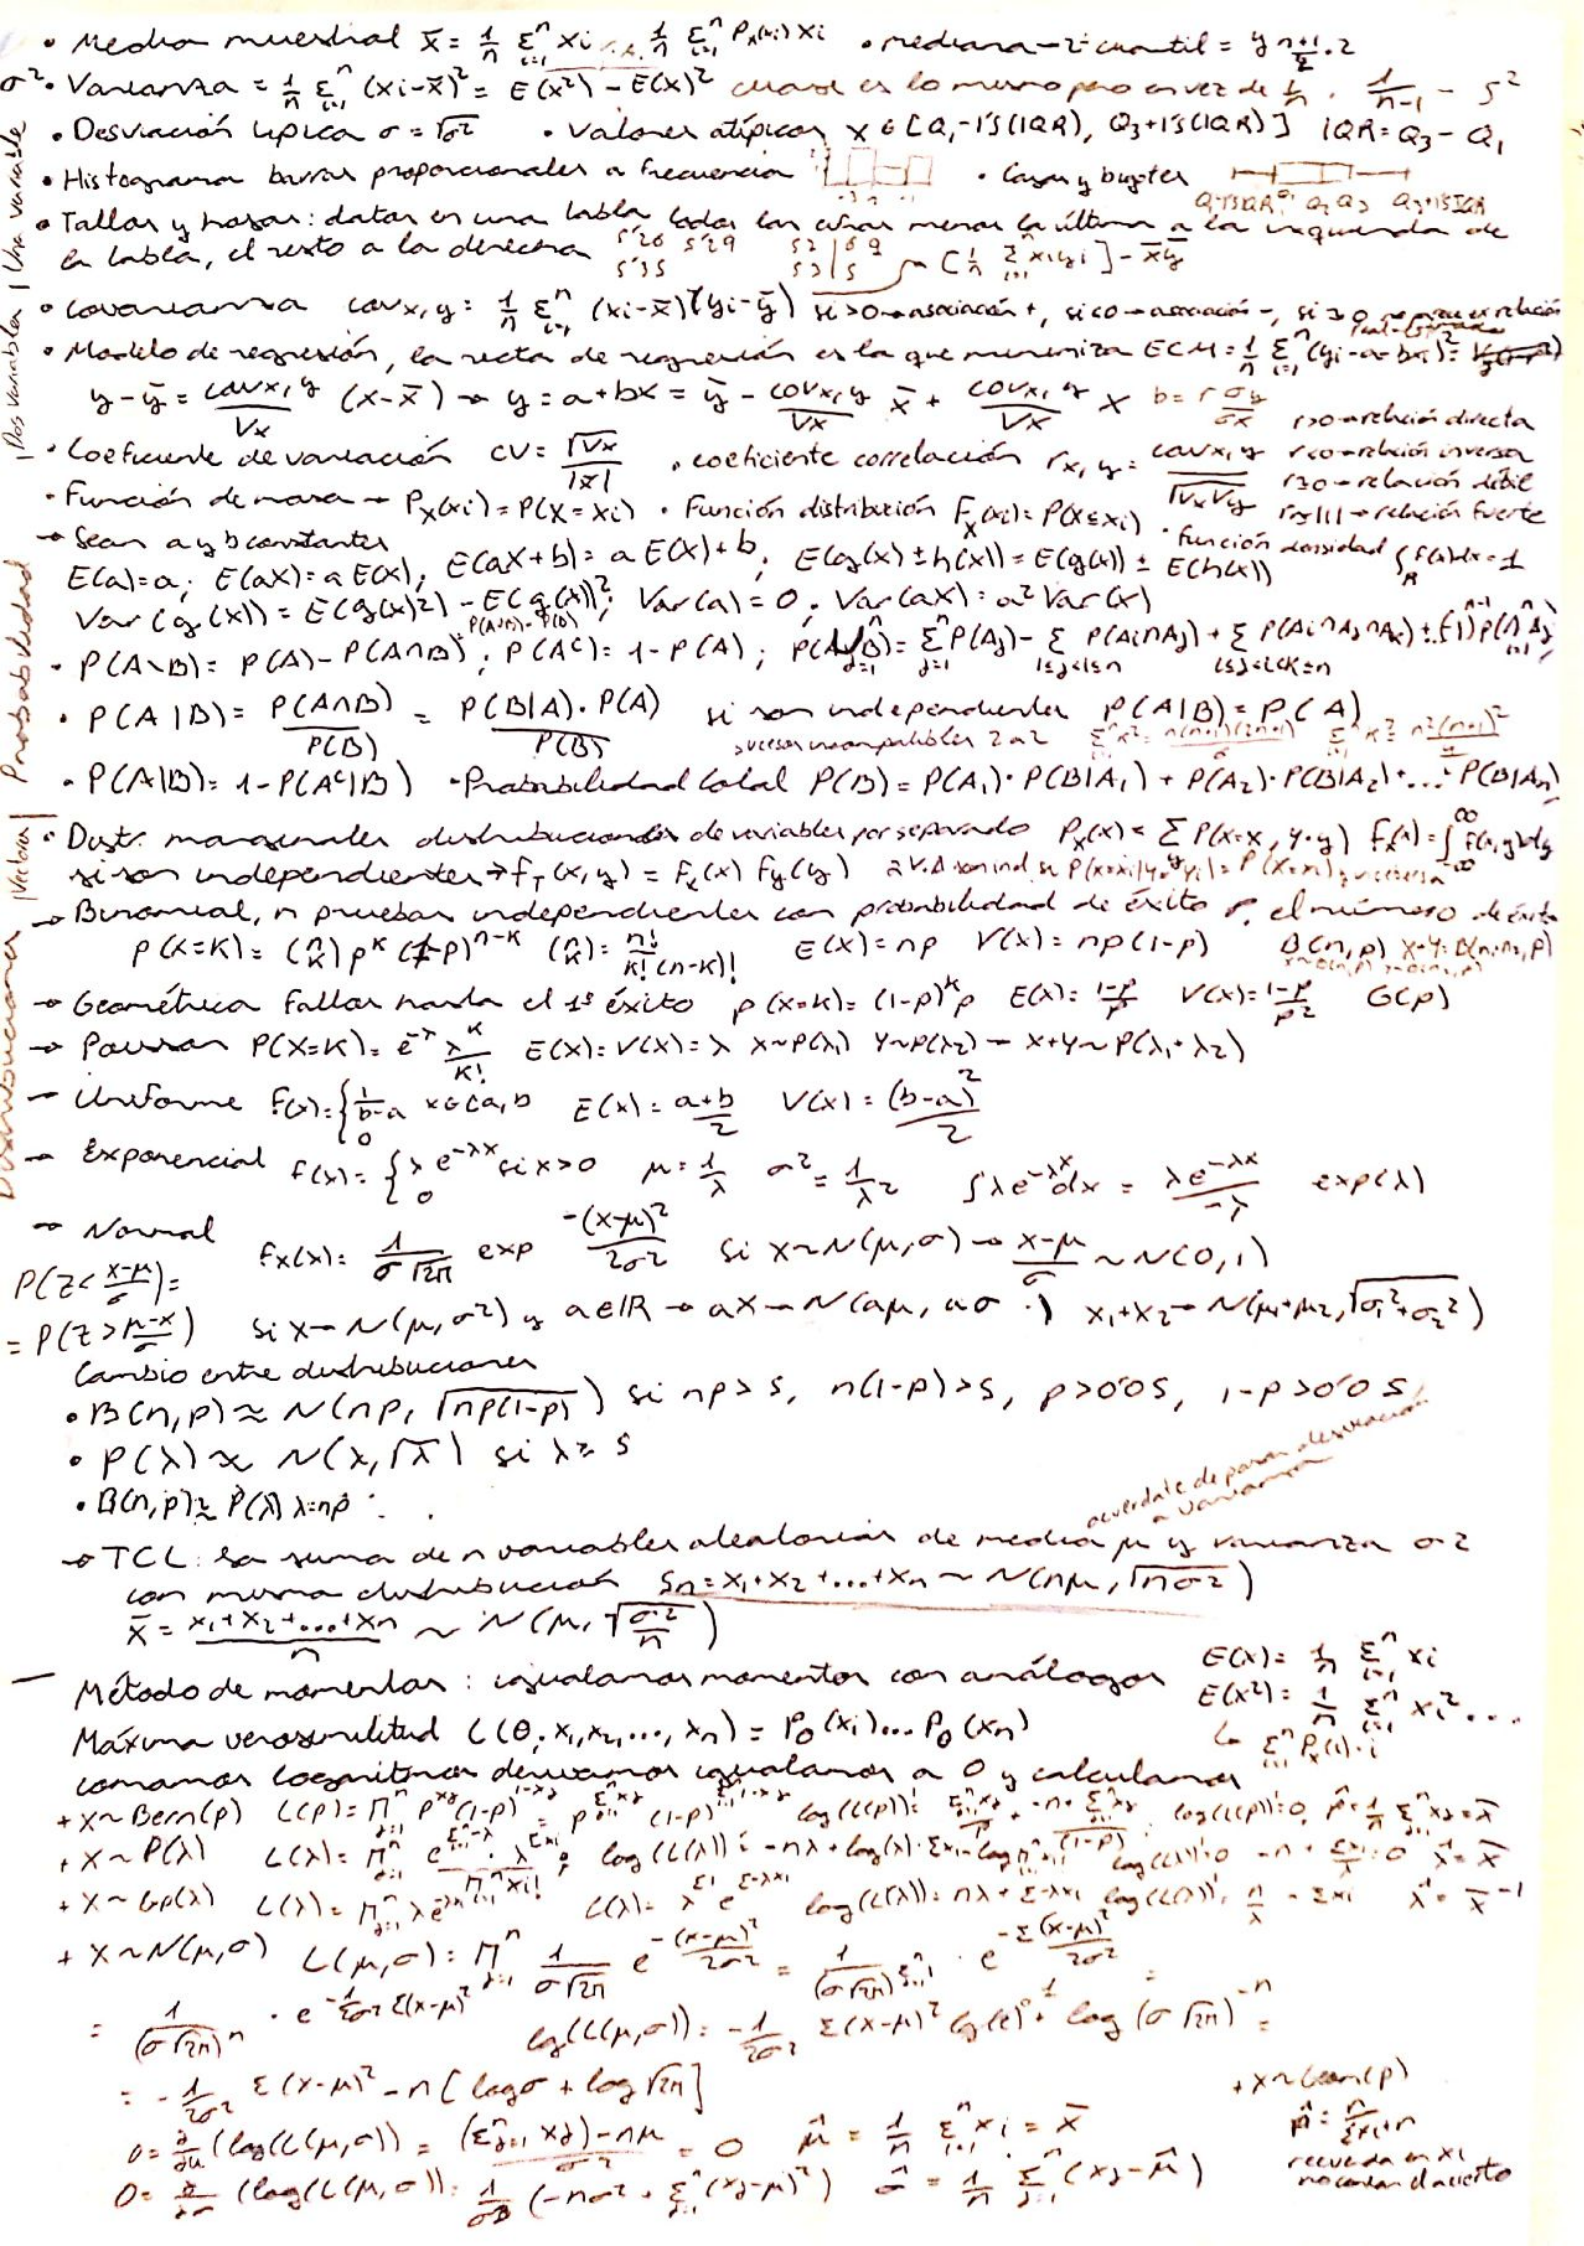 • Media muestral x̄ = 1/n Σⁿᵢ₌₁ xi 1/n Σⁿᵢ₌₁ Pₓ(xi) xi • mediana → 2º cuantil = y n+1/4 · 2
σ² • Varianza = 1/n Σⁿᵢ₌₁ (xi-x̄)² = E(x²) - E(x)² cuasi es lo mismo pero en vez de 1/n, 1/n-1 - S²
• Desviación típica σ = √σ² • Valores atípicos x ∈ [Q₁-1'5(IQR), Q₃+1'5(IQR)] IQR = Q₃ - Q₁
• Histograma barras proporcionales a frecuencia • Cajas y bigotes
Q₁-1'5IQR Q₁ Q₂ Q₃ Q₃+1'5IQR
• Tallos y hojas: datos en una tabla todas las cifras menos la última a la izquierda de
la tabla, el resto a la derecha 5'26 5'29 5'35 52|6 9 53|5 [1/n Σⁿᵢ₌₁ xiyi] - x̄ȳ
• Covarianza covx,y = 1/n Σⁿᵢ₌₁ (xi-x̄)(yi-ȳ) si >0 → asociación +, si <0 → asociación -, si ≈0 relación
• Modelo de regresión, la recta de regresión es la que minimiza ECM = 1/n Σⁿᵢ₌₁ (yi-a-bxi)² =
y-ȳ = covx,y/Vx (x-x̄) → y = a+bx = ȳ - covx,y/Vx x̄ + covx,y/Vx x b = r σy/σx r>0 → relación directa
• Coeficiente de variación CV = √Vx/|x̄| • coeficiente correlación rx,y = covx,y/√VxVy r<0 → relación inversa
r≈0 → relación débil
• Función de masa → Pₓ(xi) = P(X=xi) • Función distribución Fₓ(xi) = P(X≤xi) r≈|1| → relación fuerte
→ Sean a y b constantes • función densidad ∫_R f(x)dx = 1
E(a)=a; E(aX)=aE(X); E(aX+b) = aE(X)+b; E(g(x)±h(x)) = E(g(x)) ± E(h(x))
Var(g(x)) = E(g(x)²) - E(g(x))²; Var(a) = 0; Var(aX) = a² Var(x)
= P(A∪B) - P(B)
• P(A\B) = P(A) - P(A∩B); P(Aᶜ) = 1-P(A); = Σⁿⱼ₌₁ P(Aj) - Σ P(Ai∩Aj) + Σ P(Ai∩Aj∩Ak) ± …
• P(A|B) = P(A∩B)/P(B) = P(B|A)·P(A)/P(B) si son independientes P(A|B) = P(A)
sucesos incompatibles 2 a 2 Σⁿ k² = n(n+1)(2n+1)/6 Σⁿ k³ = n²(n+1)²/4
• P(A|B) = 1-P(Aᶜ|B) • Probabilidad total P(B) = P(A₁)·P(B|A₁) + P(A₂)·P(B|A₂)+... P(B|An)
• Distr. marginales distribuciones de variables por separado Pₓ(x) = Σ P(X=x, Y=y) fₓ(x) = ∫ f(x,y)dy
si son independientes → f_T(x,y) = fₓ(x) fy(y) 2 V.A son ind. si P(X=xi|Y=yi) = P(X=xi) y viceversa
→ Binomial, n pruebas independientes con probabilidad de éxito p, el número de éxitos
P(X=K) = (n/K) pᴷ (1-p)ⁿ⁻ᴷ (n/K) = n!/K!(n-K)! E(X) = np V(X) = np(1-p) B(n,p) X+Y = B(n₁+n₂,p)
→ Geométrica fallos hasta el 1º éxito p(X=K) = (1-p)ᴷp E(X) = 1-p/p V(X) = 1-p/p² G(p)
→ Poisson P(X=K) = e⁻ᵡ λᴷ/K! E(X) = V(X) = λ X~P(λ₁) Y~P(λ₂) → X+Y~P(λ₁+λ₂)
→ Uniforme f(x) = { 1/b-a x∈(a,b 0 E(x) = a+b/2 V(x) = (b-a)²/2
→ Exponencial f(x) = { λe^-λx si x>0 0 μ = 1/λ σ² = 1/λ² ∫λe^-λx dx = λe^-λx/-λ exp(λ)
→ Normal fₓ(x) = 1/σ√2π exp -(x-μ)²/2σ² si X~N(μ,σ) → x-μ/σ ~ N(0,1)
P(Z< x-μ/σ) =
= P(Z> μ-x/σ) si X→N(μ,σ²) y a∈ℝ → aX→N(aμ, aσ ) X₁+X₂→N(μ₁+μ₂, √σ₁²+σ₂²)
Cambio entre distribuciones
• B(n,p) ≈ N(np, √np(1-p)) si np>5, n(1-p)>5, p>0'05, 1-p>0'05
• P(λ) ≈ N(λ,√λ) si λ≥5
• B(n,p) ≈ P(λ) λ=np
acuérdate de pasar desviación
a varianza
→ TCL: la suma de n variables aleatorias de media μ y varianza σ²
con misma distribución Sn = X₁+X₂+...+Xn ~ N(nμ, √nσ²)
x̄ = x₁+x₂+...+xn/n ~ N(μ, √σ²/n)
— Método de momentos: igualamos momentos con análogos E(X) = 1/n Σⁿᵢ₌₁ xi
E(X²) = 1/n Σⁿᵢ₌₁ xi² ...
Máxima verosimilitud L(θ; x₁,x₂,...,xn) = Pθ(xi)...Pθ(xn) ↳ Σⁿᵢ₌₁ Pₓ(i)·i
tomamos logaritmos derivamos igualamos a 0 y calculamos
+ X~Bern(p) L(p) = Πⁿⱼ₌₁ p^xj (1-p)^1-xj = p^Σxj (1-p)^Σ1-xj log(L(p))' = Σxj/p + -n+Σxj/(1-p) log(L(p))'=0, p̂ = 1/n Σⁿⱼ₌₁ xj = x̄
+ X~P(λ) L(λ) = Πⁿⱼ₌₁ e^Σ-λ · λ^Σxi / Πⁿxi! log(L(λ)) = -nλ+log(λ)·Σxi-log log(L(λ))'=0 -n+Σxi/λ=0 λ̂=x̄
+ X~Exp(λ) L(λ) = Πⁿⱼ₌₁ λe L(λ) = λ^Σ1 e^Σ-λxi log(L(λ)) = nλ+Σ-λxi log(L(λ))' = n/λ - Σxi λ̂ = x̄⁻¹
+ X~N(μ,σ) L(μ,σ) = Πⁿⱼ₌₁ 1/σ√2π e^-(x-μ)²/2σ² = 1/(σ√2π)^Σ1 · e^-Σ(x-μ)²/2σ² =
= 1/(σ√2π)ⁿ · e^-1/2σ² Σ(x-μ)² log(L(μ,σ)) = -1/2σ² Σ(x-μ)² log(e) + log(σ√2π)⁻ⁿ =
= -1/2σ² Σ(x-μ)² - n[logσ + log√2π]
+ X~Geom(p)
0 = ∂/∂μ (log(L(μ,σ)) = (Σⁿⱼ₌₁ xj)-nμ/σ² = 0 μ̂ = 1/n Σⁿᵢ₌₁ xi = x̄ p̂ = n/Σxi+n
0 = ∂/∂σ (log(L(μ,σ)) = 1/σ³ (-nσ² + Σⁿⱼ₌₁ (xj-μ)²) σ̂ = 1/n Σⁿⱼ₌₁ (xj-μ̂)
recuerda en xi
no contar el acierto
| Dos variables | Una variable
Probabilidad
|Vectores|
Distribuciones